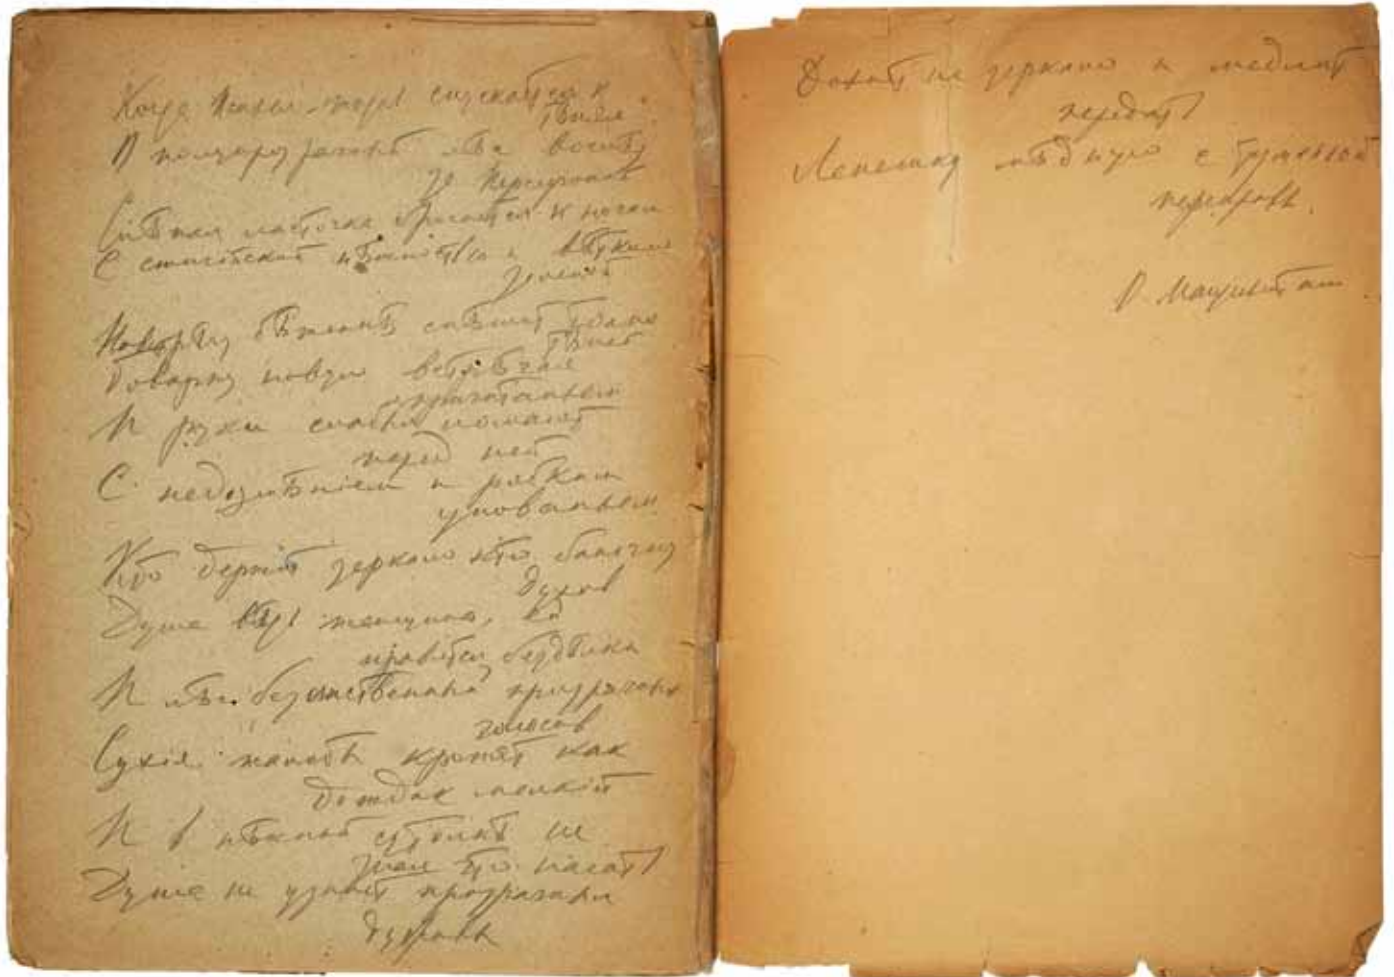 Когда Психея-жизнь спускается к
тѣням
В полупрозрачный лѣс вослѣд
за Персефоной
Слѣпая ласточка бросается к ногам
С стигийской нѣжностью и вѣткою
зеленой
Навстрѣчу бѣженкѣ спѣшит толпа
тѣней
Товарку новую встрѣчая
причитаньем
И руки слабыя ломают
перед ней
С недоумѣнием и робким
упованьем
Кто держит зеркало кто баночку
духов
Душа вѣдь женщина, ей
нравятся бездѣлки
И лѣс безлиственный прозрачных
голосов
Сухия жалобы кропят как
дождик мелкий
И в нѣжной сутолкѣ не
зная что начать
Душа не узнает прозрачныя
дубравы
Дохнет на зеркало и медлит
передать
Лепешку мѣдную с туманной
переправы.
О. Мандельштам.